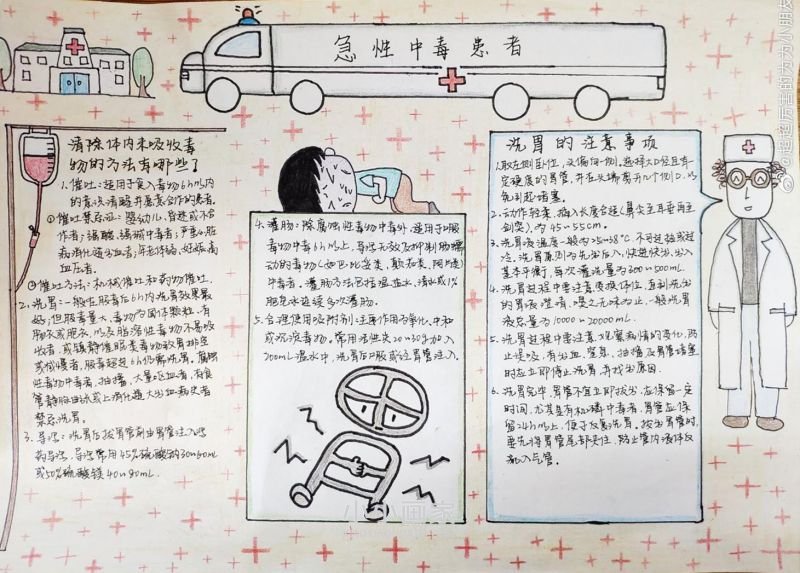 急性中毒患者
清除体内未吸收毒
物的方法有哪些？
1. 催吐：适用于食入毒物6h以内
的意识清醒并愿意合作的患者。
①催吐禁忌证：婴幼儿、昏迷或不合
作者；强酸、强碱中毒者；严重心脏
病消化道出血者；年老体弱、妊娠高
血压者。
②催吐方法：机械催吐和药物催吐。
2. 洗胃：一般在服毒后6h内洗胃效果最
好；但服毒量大，毒物为固体颗粒，有
肠衣或脱衣，以及脂溶性毒物不易吸
出者，或镇静催眠类毒物致胃排空
或慢者，服毒超过6h仍需洗胃。腐蚀
性毒物中毒者，抽搐、大量呕血者，有食
管静脉曲张或上消化道大出血病史者
禁忌洗胃。
3. 导泻：洗胃后拔胃管前由胃管注入泻
药导泻，导泻常用45%硫酸钠30~60ml
或50%硫酸镁40~80ml.
4. 灌肠：除腐蚀性毒物中毒外，适用于口服
毒物中毒6h以上，导泻无效及抑制肠蠕
动的毒物（如巴比妥类，颠茄类，阿片类）
中毒者。灌肠方法包括温盐水、清水或1%
肥皂水连续多次灌肠。
5. 合理使用吸附剂：主要作用为氧化、中和
或沉淀毒物。常用活性炭20~30g加入
200ml温水中，洗胃后口服或注胃管注入。
洗胃的注意事项
1. 取左侧卧位，头偏向一侧。选择大口径且有一
定硬度的胃管，并在头端离开几个侧口，以
免引起堵塞。
2. 动作轻柔，插入长度合适（鼻尖至耳垂再至
剑突），为45~55cm。
3. 洗胃液温度一般为25~38℃，不可过热或过
冷。洗胃原则为先出后入，快进快出，出入
基本平衡，每次灌洗量为300~500ml.
4. 洗胃过程中要注意变换体位，直到洗出
的胃液澄清，嗅之无味为止，一般洗胃
液总量为10000~20000ml.
5. 洗胃过程中要注意观察病情的变化，防
止误吸，有出血、窒息、抽搐及胃管堵塞
时应立即停止洗胃，并找出原因。
6. 洗胃完毕，胃管不宜立即拔出，应保留一定
时间，尤其是有机磷中毒者，胃管应保
留24h以上，便于反复洗胃。拔出胃管时，
要先将胃管尾部夹住，防止管内液体反
流入气管。